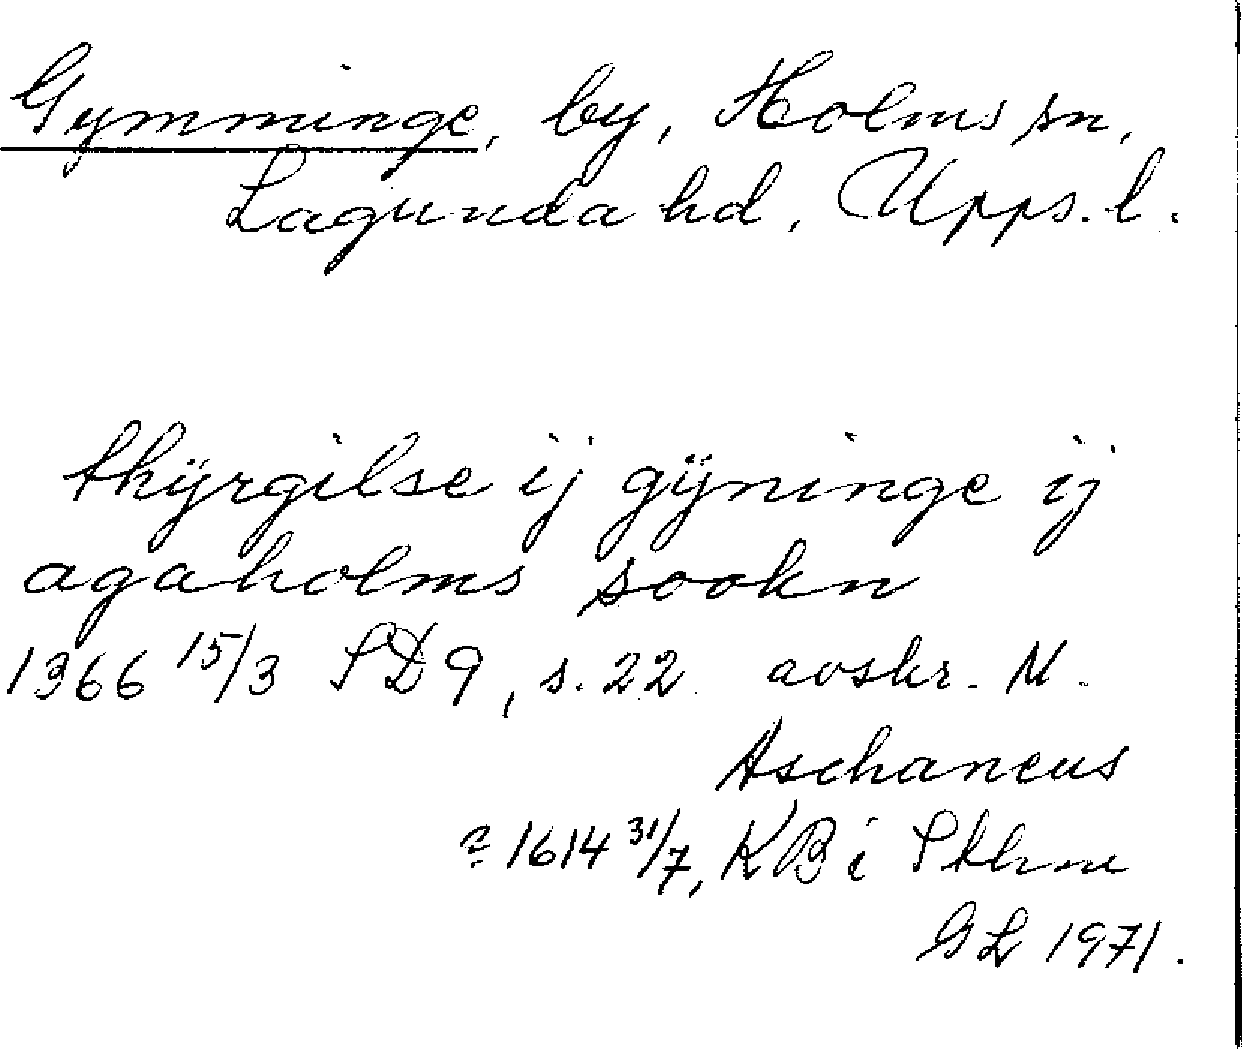 Gymminge, by, Holms sn,
Lagunda hd, Upps. l.
thÿrgilse ij gÿninge ij
agaholms sookn
1366 15/3 SD 9, s. 22. avskr. M.
Aschaneus
? 1614 31/7, KB i Sthm
GL 1971.